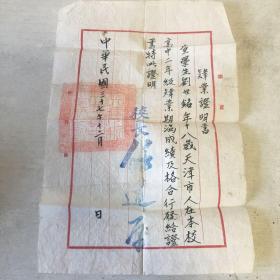 肄業證明書
查學生劉世銘年十八歲天津市人在本校
高中二年級肄業期滿成績及格合行發給證
書特此證明
校長
中華民國三十七年十二月 日